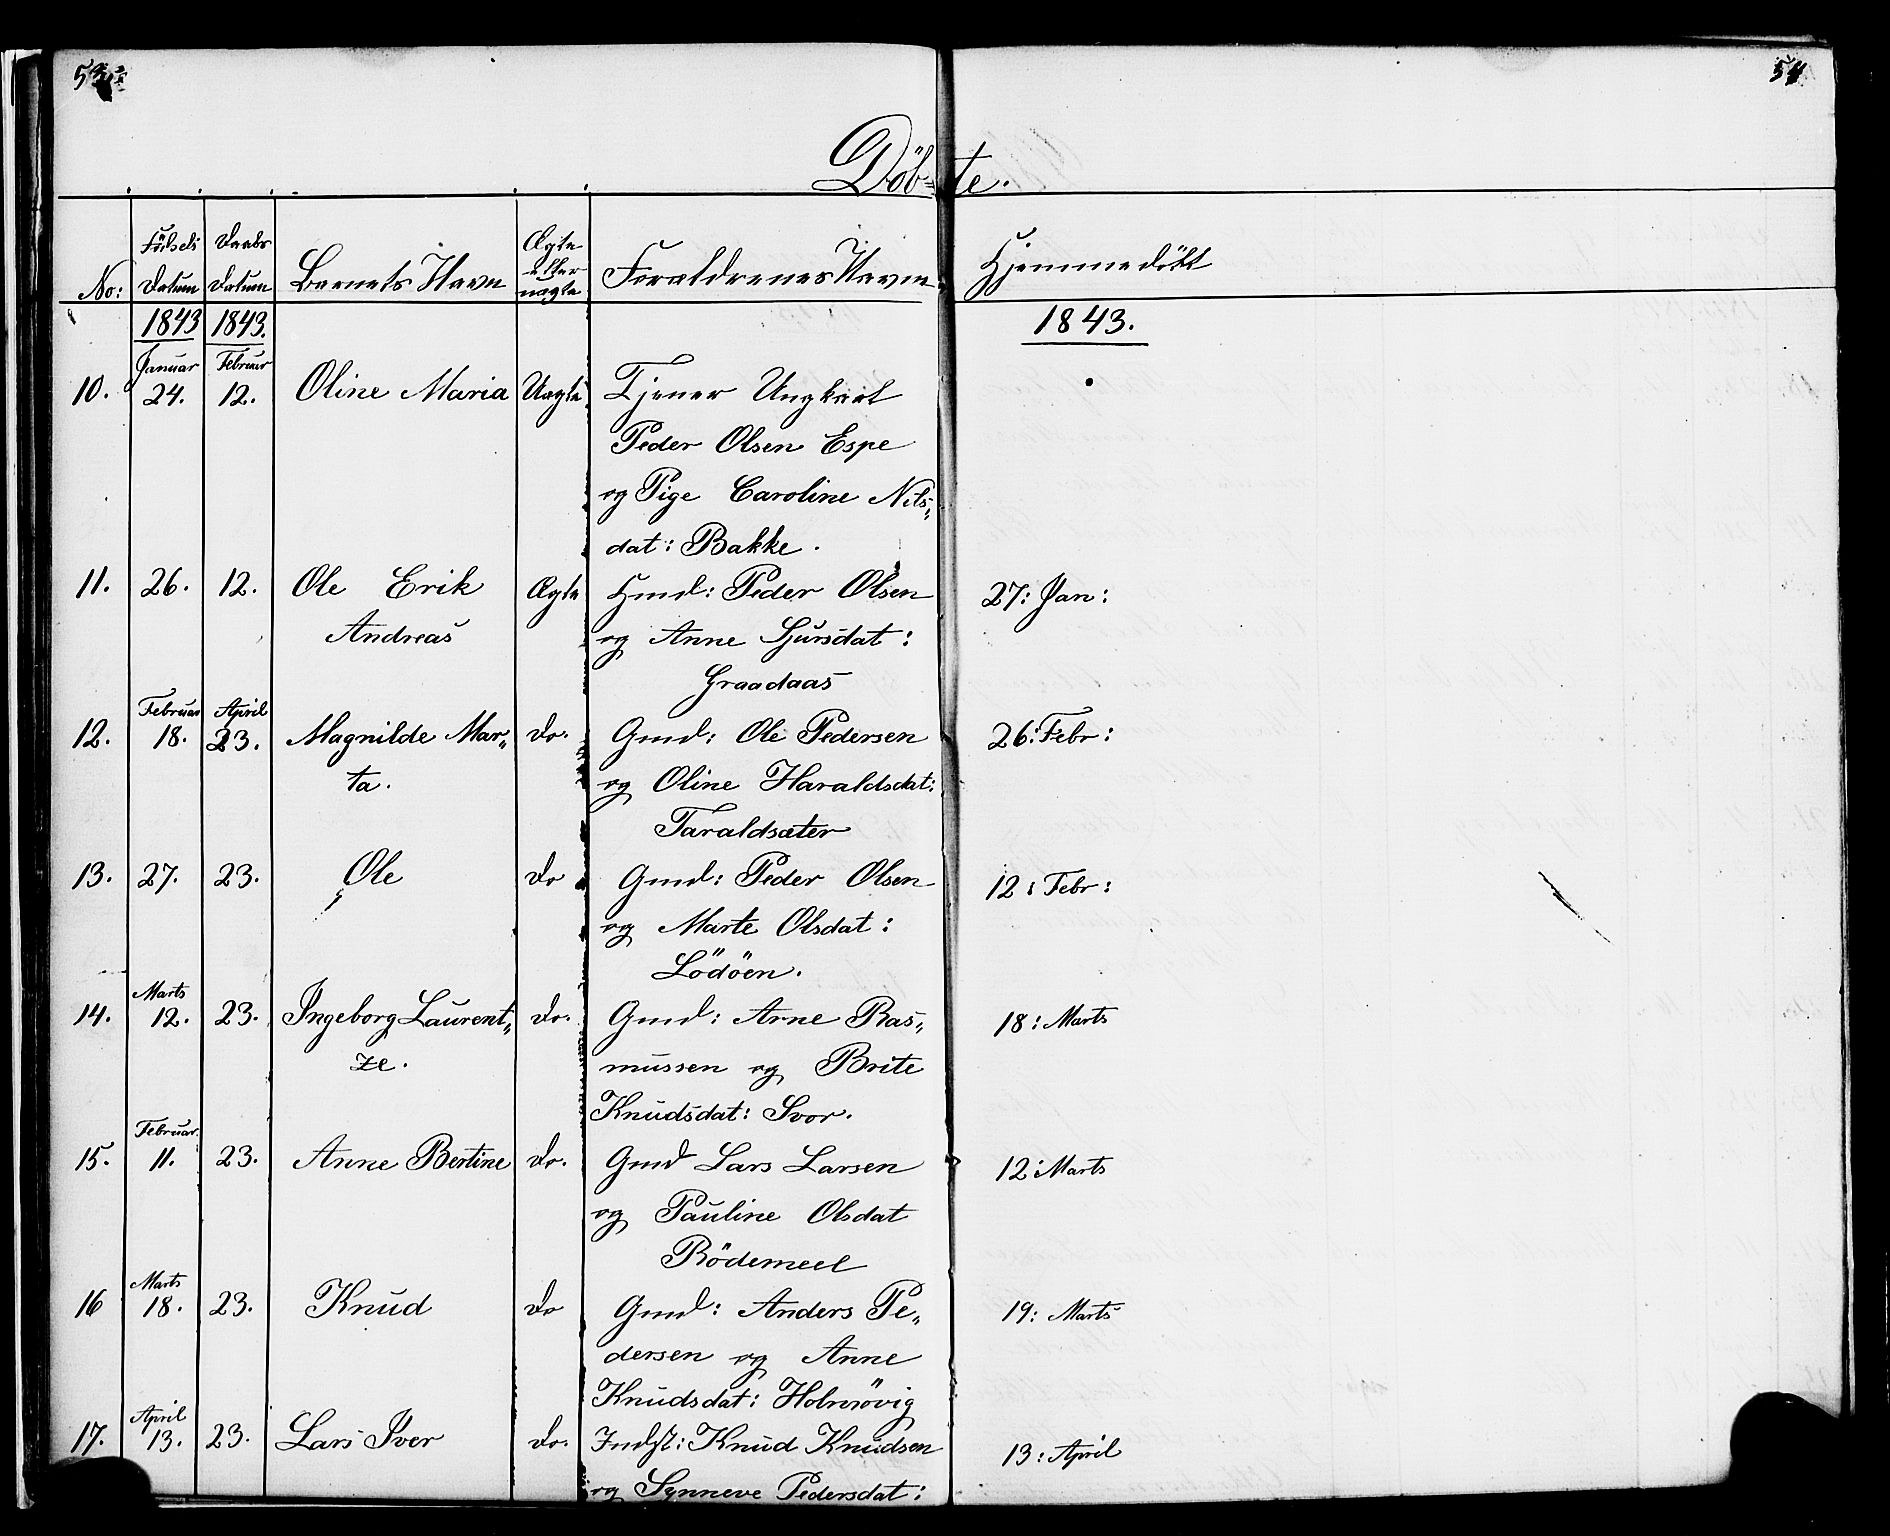 53.
54.
Döb-te.
No:
Födsels Datum
Daabs Datum
Barnets Navn
Ægte eller uægte
Forældrenes Navn
Hjemmedöbt
1843 1843. 1843.
Januar Februar
10. 24. 12. Oline Maria Uægte Tjener Ungkarl
Peder Olsen Espe
og Pige Caroline Nils-
dat: Bakke.
11. 26. 12. Ole Erik Ægte Hmd: Peder Olsen 27: Jan:
Andreas og Anne Sjursdat:
Graadaas
Februar April
12. 18. 23. Magnilde Mar- do. Gmd: Ole Pedersen 26: Febr:
ta. og Oline Haraldsdat:
Taraldsæter
13. 27. 23. Ole do Gmd: Peder Olsen 12: Febr:
og Marte Olsdat:
Lödöen.
Marts
14. 12. 23. Ingeborg Laurent- do. Gmd: Arne Ras- 18: Marts
ze. mussen og Brite
Knudsdat: Svor.
Februar.
15. 11. 23. Anne Bertine do. Gmd Lars Larsen 12: Marts
og Pauline Olsdat
Rödemeel
Marts
16 18. 23. Knud do Gmd: Anders Pe- 19: Marts
dersen og Anne
Knudsdat: Holmövig
April
17. 13. 23. Lars Iver do. Indst: Knud Knudsen 13: April
og Synneve Pedersdat: